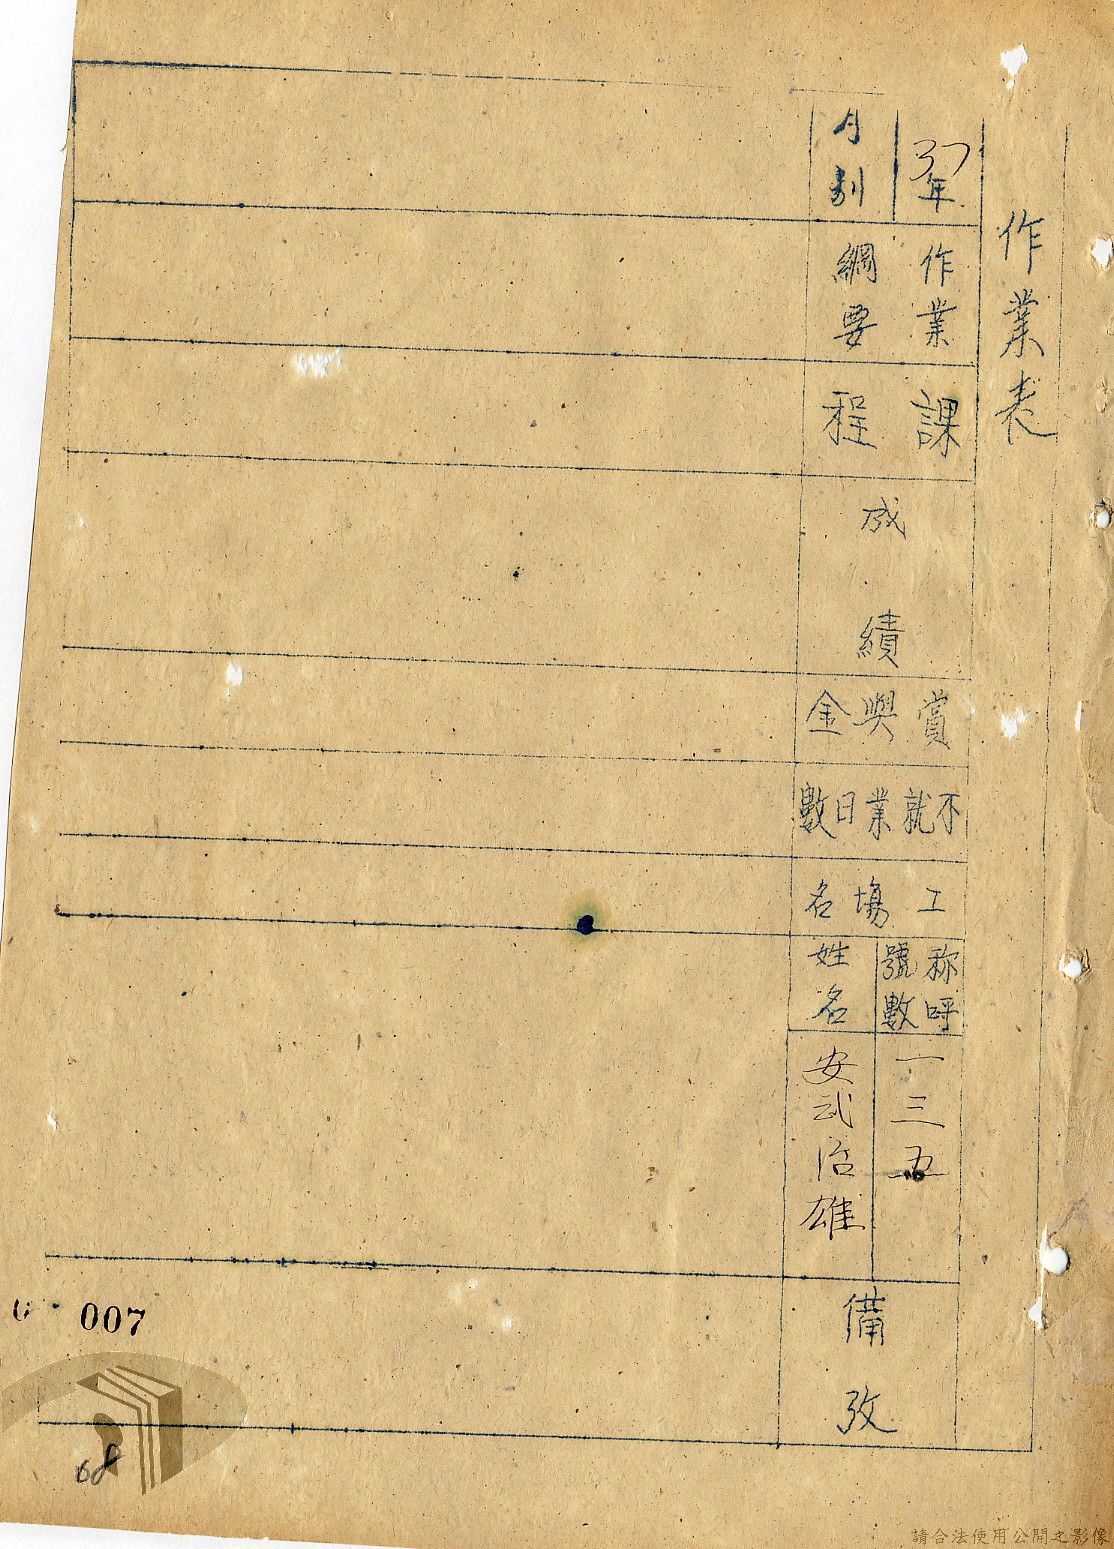 作業表
37年
月別
作業
綱要
課
程
成績
賞與金
不就業日數
工場名
称呼
號數
一三五
姓名
安武治雄
備攷
007
68
請合法使用公開之影像